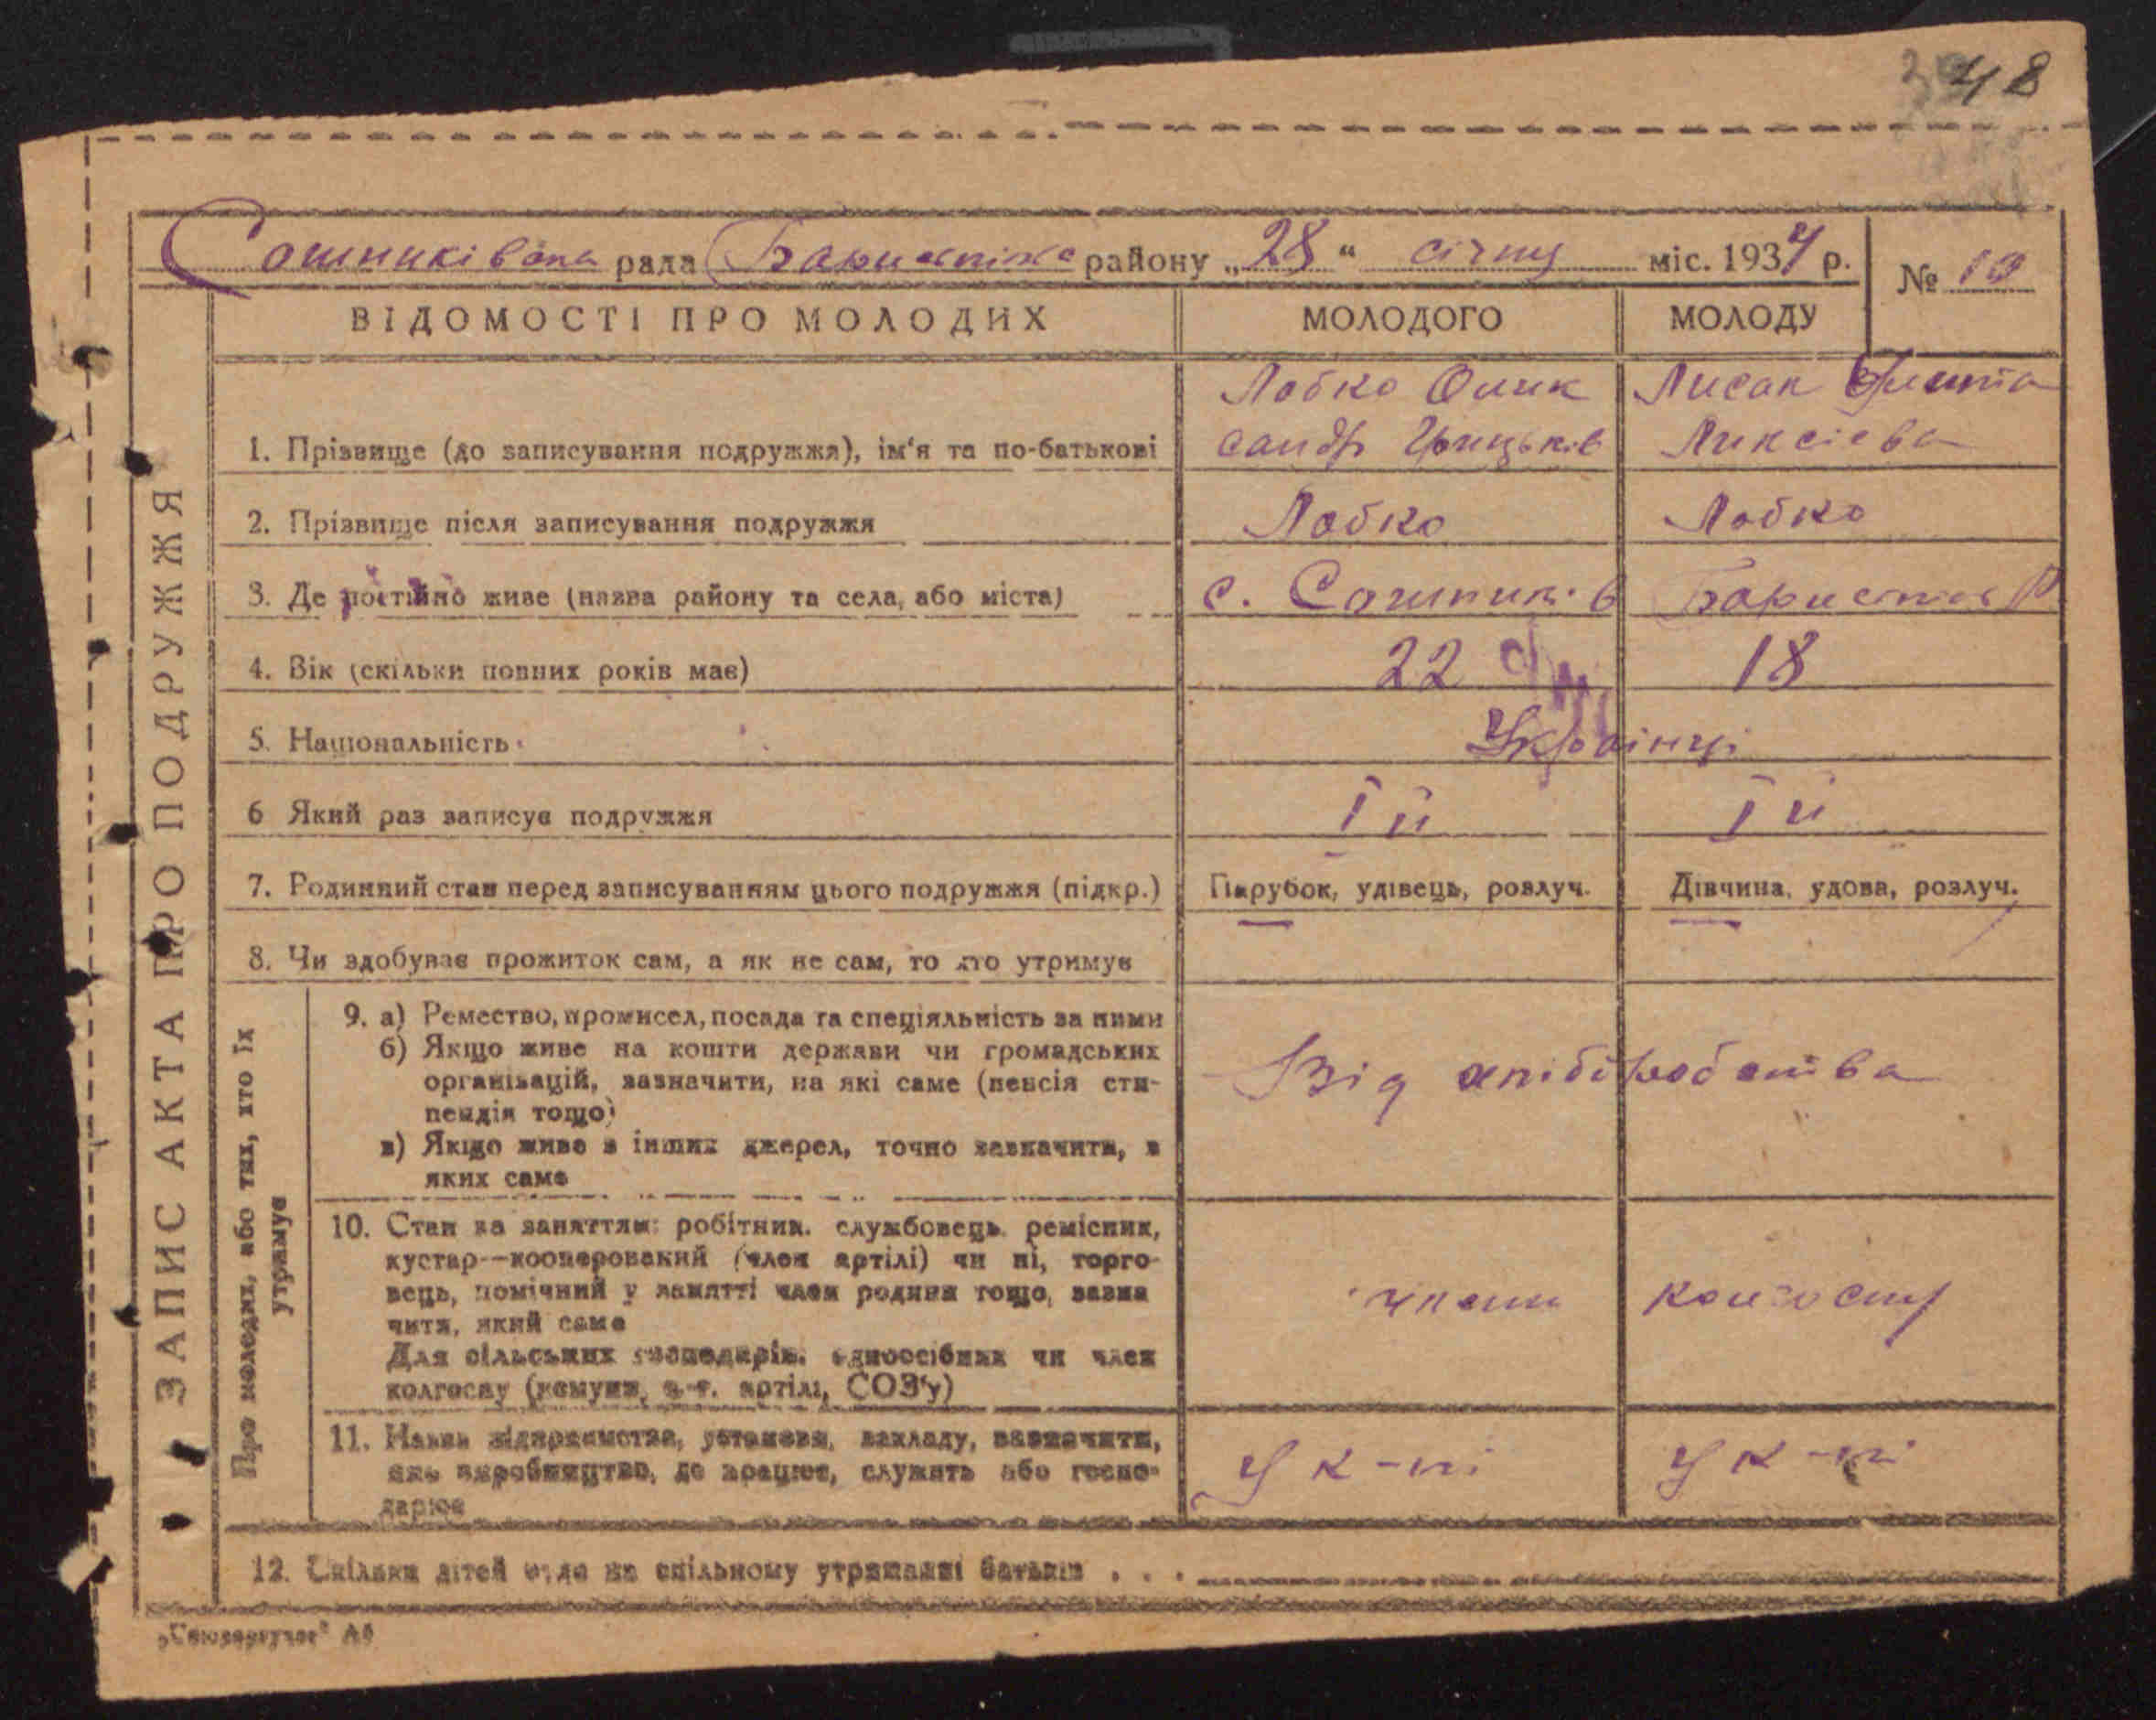 48
Сошниківська рада Бориспільс району „28“ січня міс. 1934 р.
№ 10
ВІДОМОСТІ ПРО МОЛОДИХ
МОЛОДОГО
МОЛОДУ
ЗАПИС АКТА ПРО ПОДРУЖЖЯ
1. Прізвище (до записування подружжя), ім'я та по-батькові
Лобко Олек
сандр Грицьків
Лисак
Ликсієва
2. Прізвище після записування подружжя
Лобко
Лобко
3. Де постійно живе (назва району та села, або міста)
с. Сошників
4. Вік (скільки повних років має)
22
18
5. Національність
Українці
6 Який раз записує подружжя
І й
І й
7. Родинний стан перед записуванням цього подружжя (підкр.)
Парубок, удівець, розлуч.
Дівчина, удова, розлуч.
8. Чи здобуває прожиток сам, а як не сам, то хто утримує
Про молодих, або тих, хто їх
утримує
9. а) Ремество, промисел, посада та спеціяльність за ними
б) Якщо живе на кошти держави чи громадських
організацій, зазначити, на які саме (пенсія сти-
пендія тощо)
в) Якщо живе з інших джерел, точно зазначити, з
яких саме
Від хліборобства
10. Стан за заняттям: робітник. службовець. ремісник,
кустар--кооперований (член артілі) чи ні, торго-
вець, помічний у занятті член родини тощо, зазна
чити, який саме
Для сільських господарів. одноосібник чи член
колгоспу (комуни, с.-г. артілі, СОЗ'у)
члени колгоспу
11. Назва підприємства, установи, закладу, зазначити,
яке виробництво, де працює, служить або госпо-
дарює
У к-пі
У к-пі
12. Скільки дітей буде на спільному утриманні батьків . . .